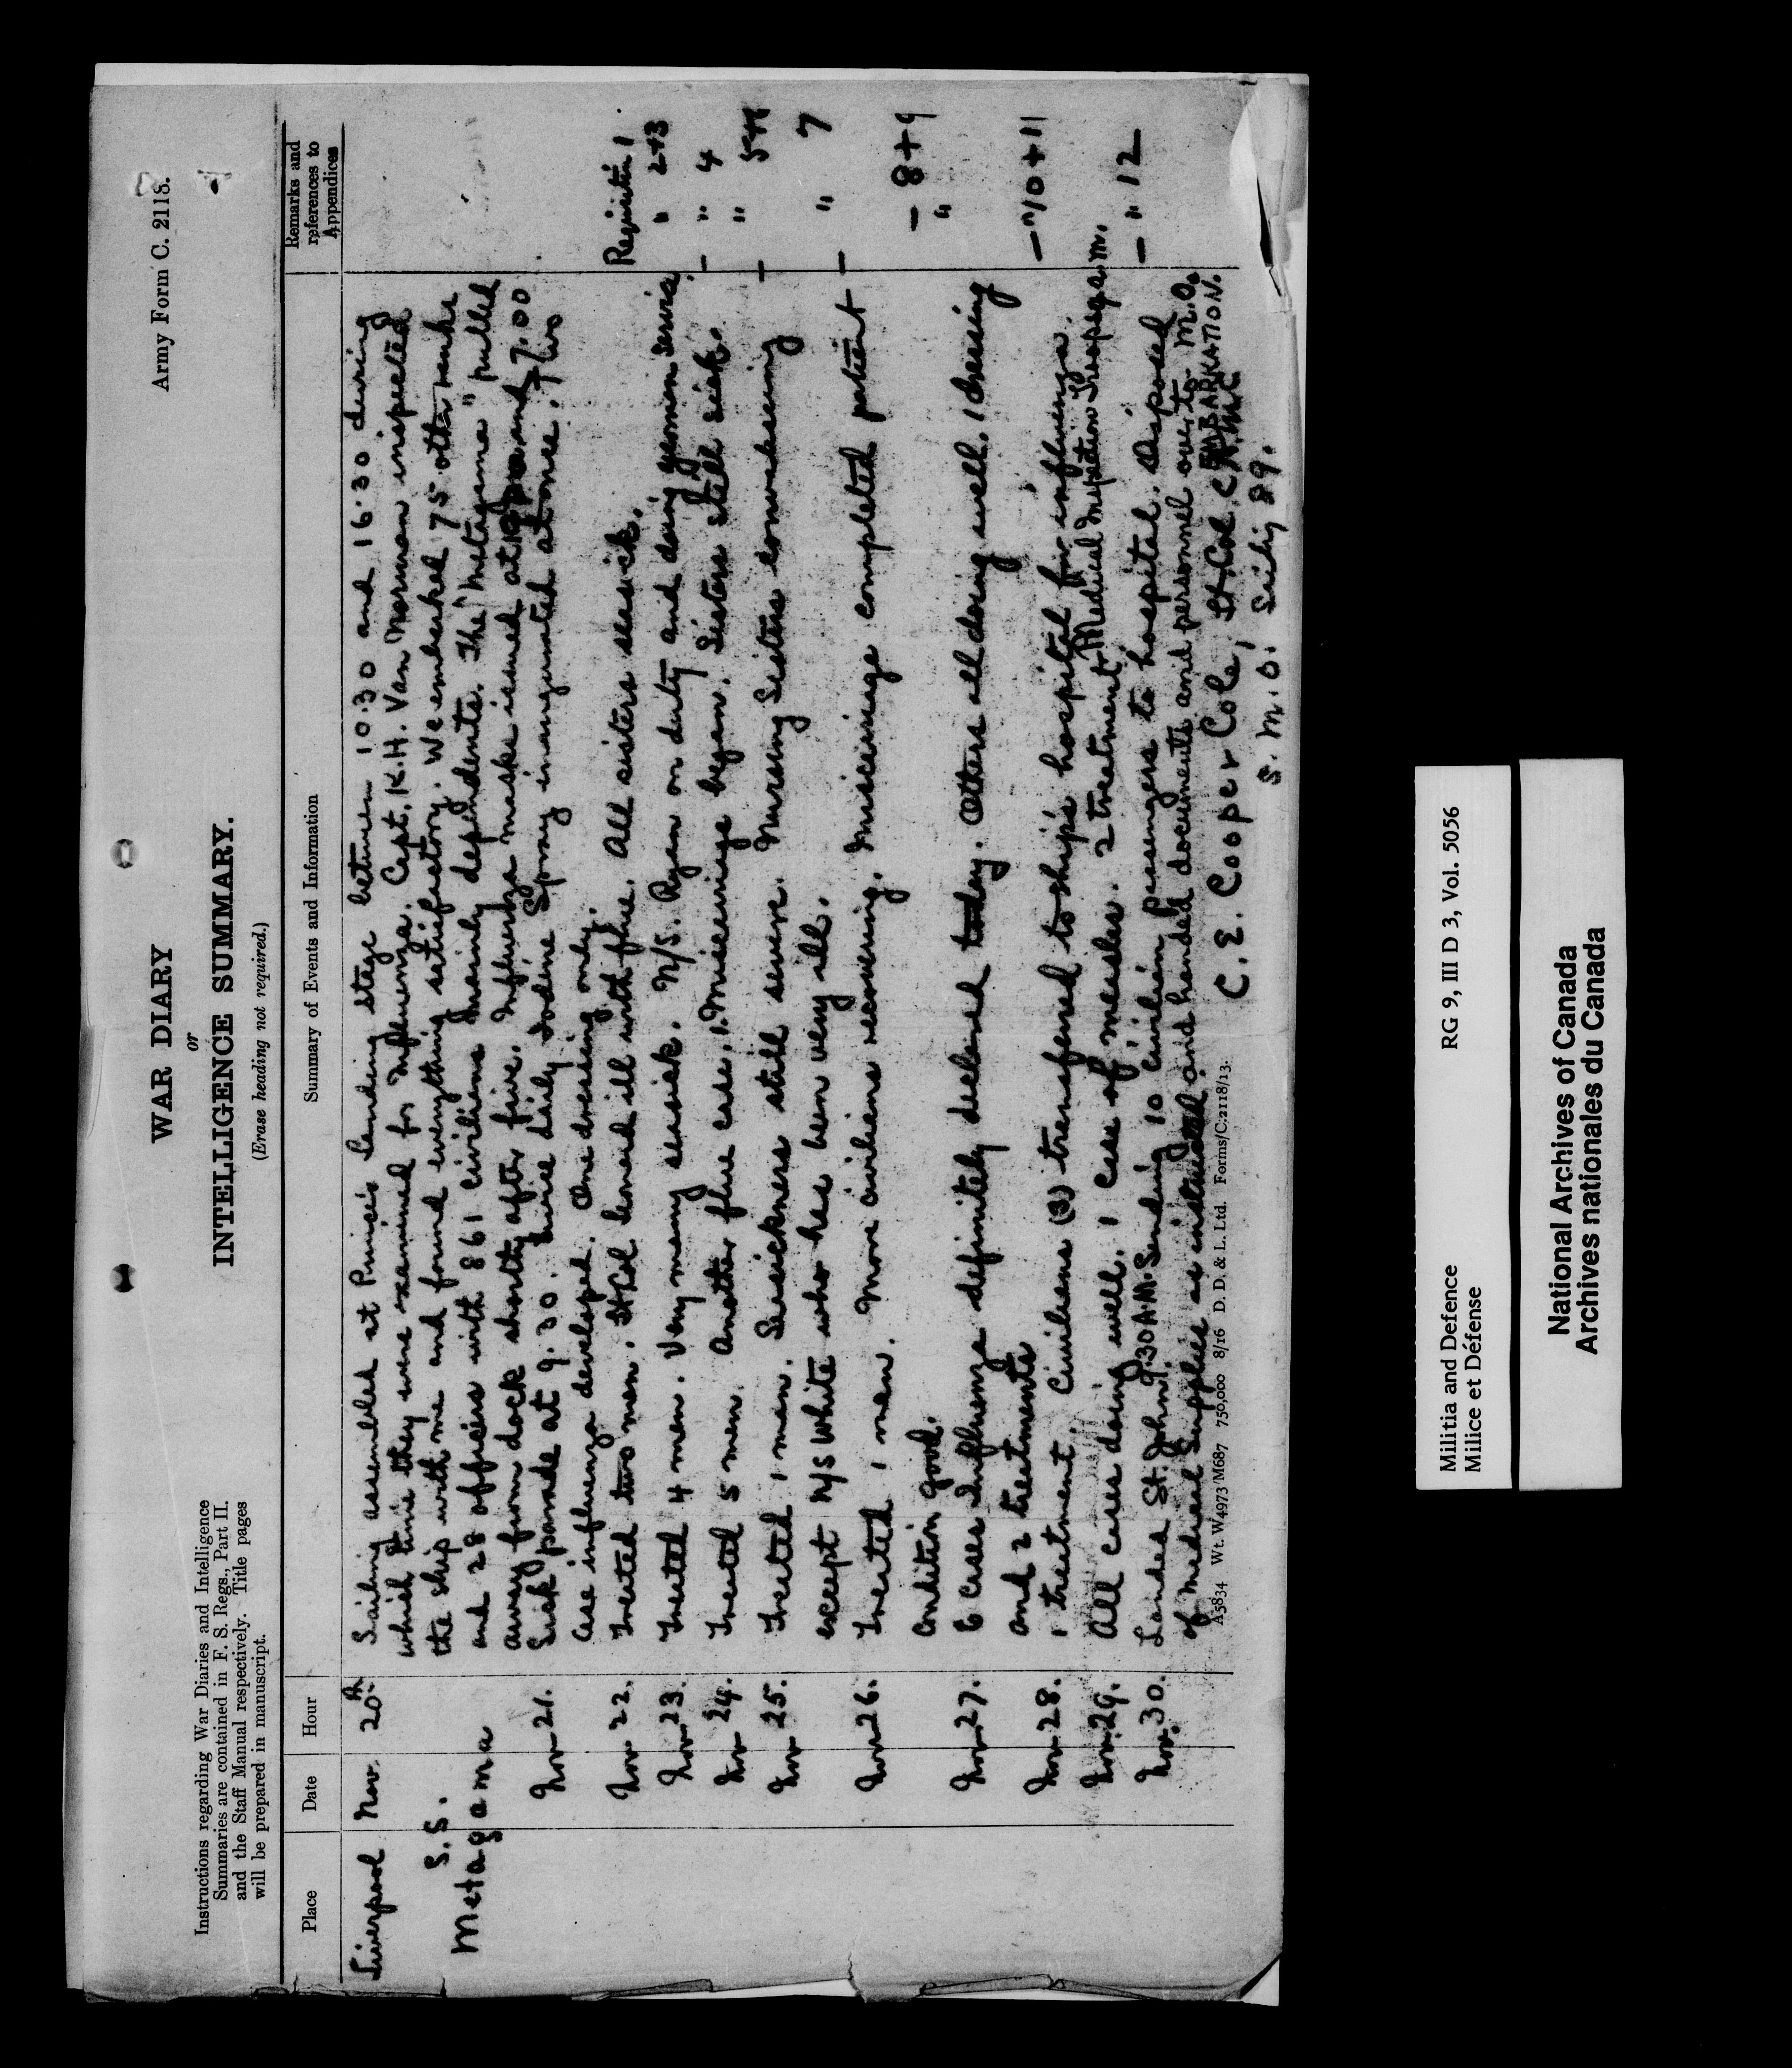 Army Form C. 2118.
WAR DIARY
or
INTELLIGENCE SUMMARY.
(Erase heading not required.)
Instructions regarding War Diaries and Intelligence
Summaries are contained in F. S. Regs., Part II.
and the Staff Manual respectively. Title pages
will be prepared in manuscript.
Place Date Hour Summary of Events and Information Remarks and references to Appendices
Liverpool Nov. 20th Sailing assembled at Princes Landing stage between 10.30 and 16.30 during
which time they were examined for Influenza. Capt. K.H. Van Norman inspected
S.S. the ship with me and found everything satisfactory. We embarked 75 other ranks
Metagama and 28 officers with 861 civilians mainly dependents. The "Metagama" pulled
away from dock shortly after five. Influenza masks issued at and 7.00
Nov 21. Sick parade at 9.30. Twice daily Iodine Spray inaugurated at once. Two
case influenza developed. One dressing only.
Nov 22. Treated two men. Lt Col Leonard ill with flue. All sisters seasick. Requisition 1.
Nov 23. Treated 4 men. Very many seasick. N/S. Ryan on duty and doing yeoman service. " 2+3
Nov 24. Treated 5 men. Another flue case, 1 Miscarriage began. Sisters still sick. – " 4
Nov 25. Treated 1 man. Seasickness still severe. Nursing Sisters convalescing – " 5+6
except N/S White who has been very ill.
Nov 26. Treated 1 man. More civilians recovering. Miscarriage completed patient – " 7
condition good.
Nov 27. 6 Cases Influenza definitely declared today. Others all doing well. 1 dressing – 8+9 "
and 2 treatments
Nov 28. 1 treatment. Civilians (3) transferred to ships hospital for influenza. – " 10+11
Nov. 29. All cases doing well. 1 case of measles. 2 treatment. Medical Inspection Troops 9 a.m.
Nov. 30. Landed St. John 9.30 A.M. Sending 10 civilian passengers to hospital. Disposed – " 12
of medical Supplies as instructed and handed documents and personnel over to M.O.
EMBARKATION.
C. E. Cooper Cole, Lt Col. C.A.M.C
S. M. O. Sailing 89.
A5834 Wt. W4973/M687 750,000 8/16 D. D. & L. Ltd. Forms/C.2118/13.
Militia and Defence
Milice et Défense
RG 9, III D 3, Vol. 5056
National Archives of Canada
Archives nationales du Canada